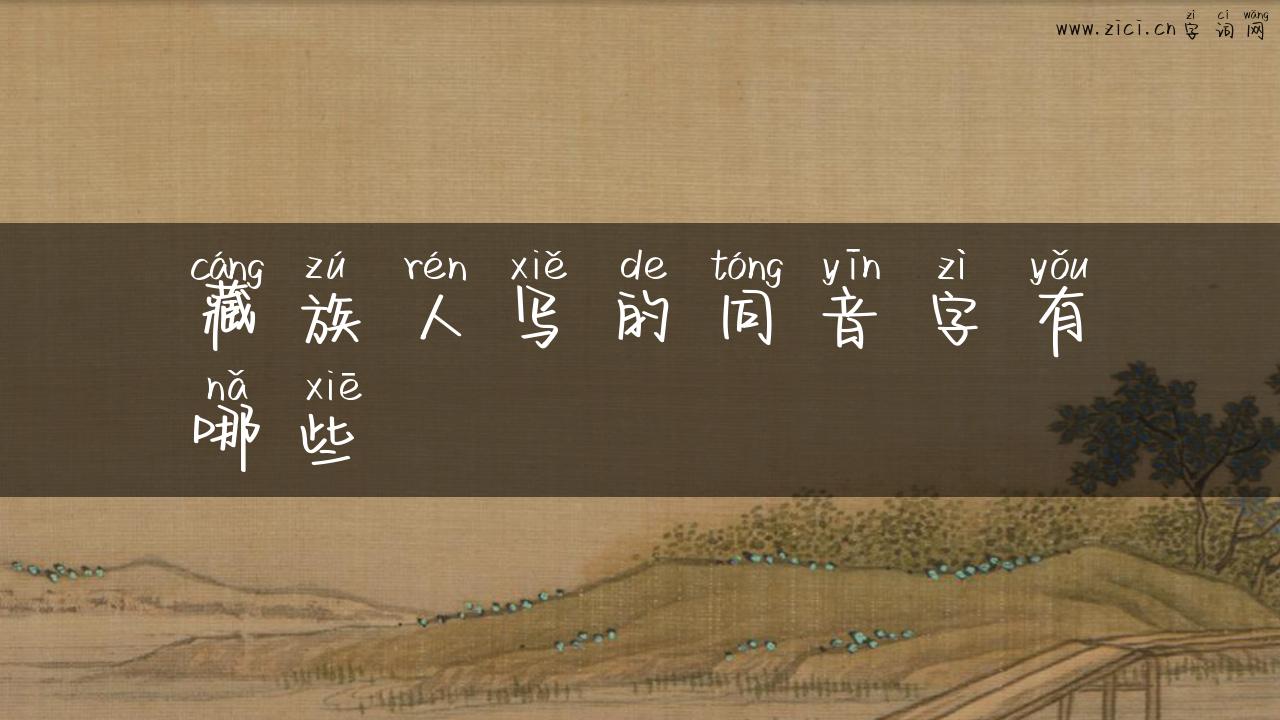 zì cí wǎng
www.zici.cn字词网
cáng zú rén xiě de tóng yīn zì yǒu
藏族人写的同音字有
nǎ xiē
哪些